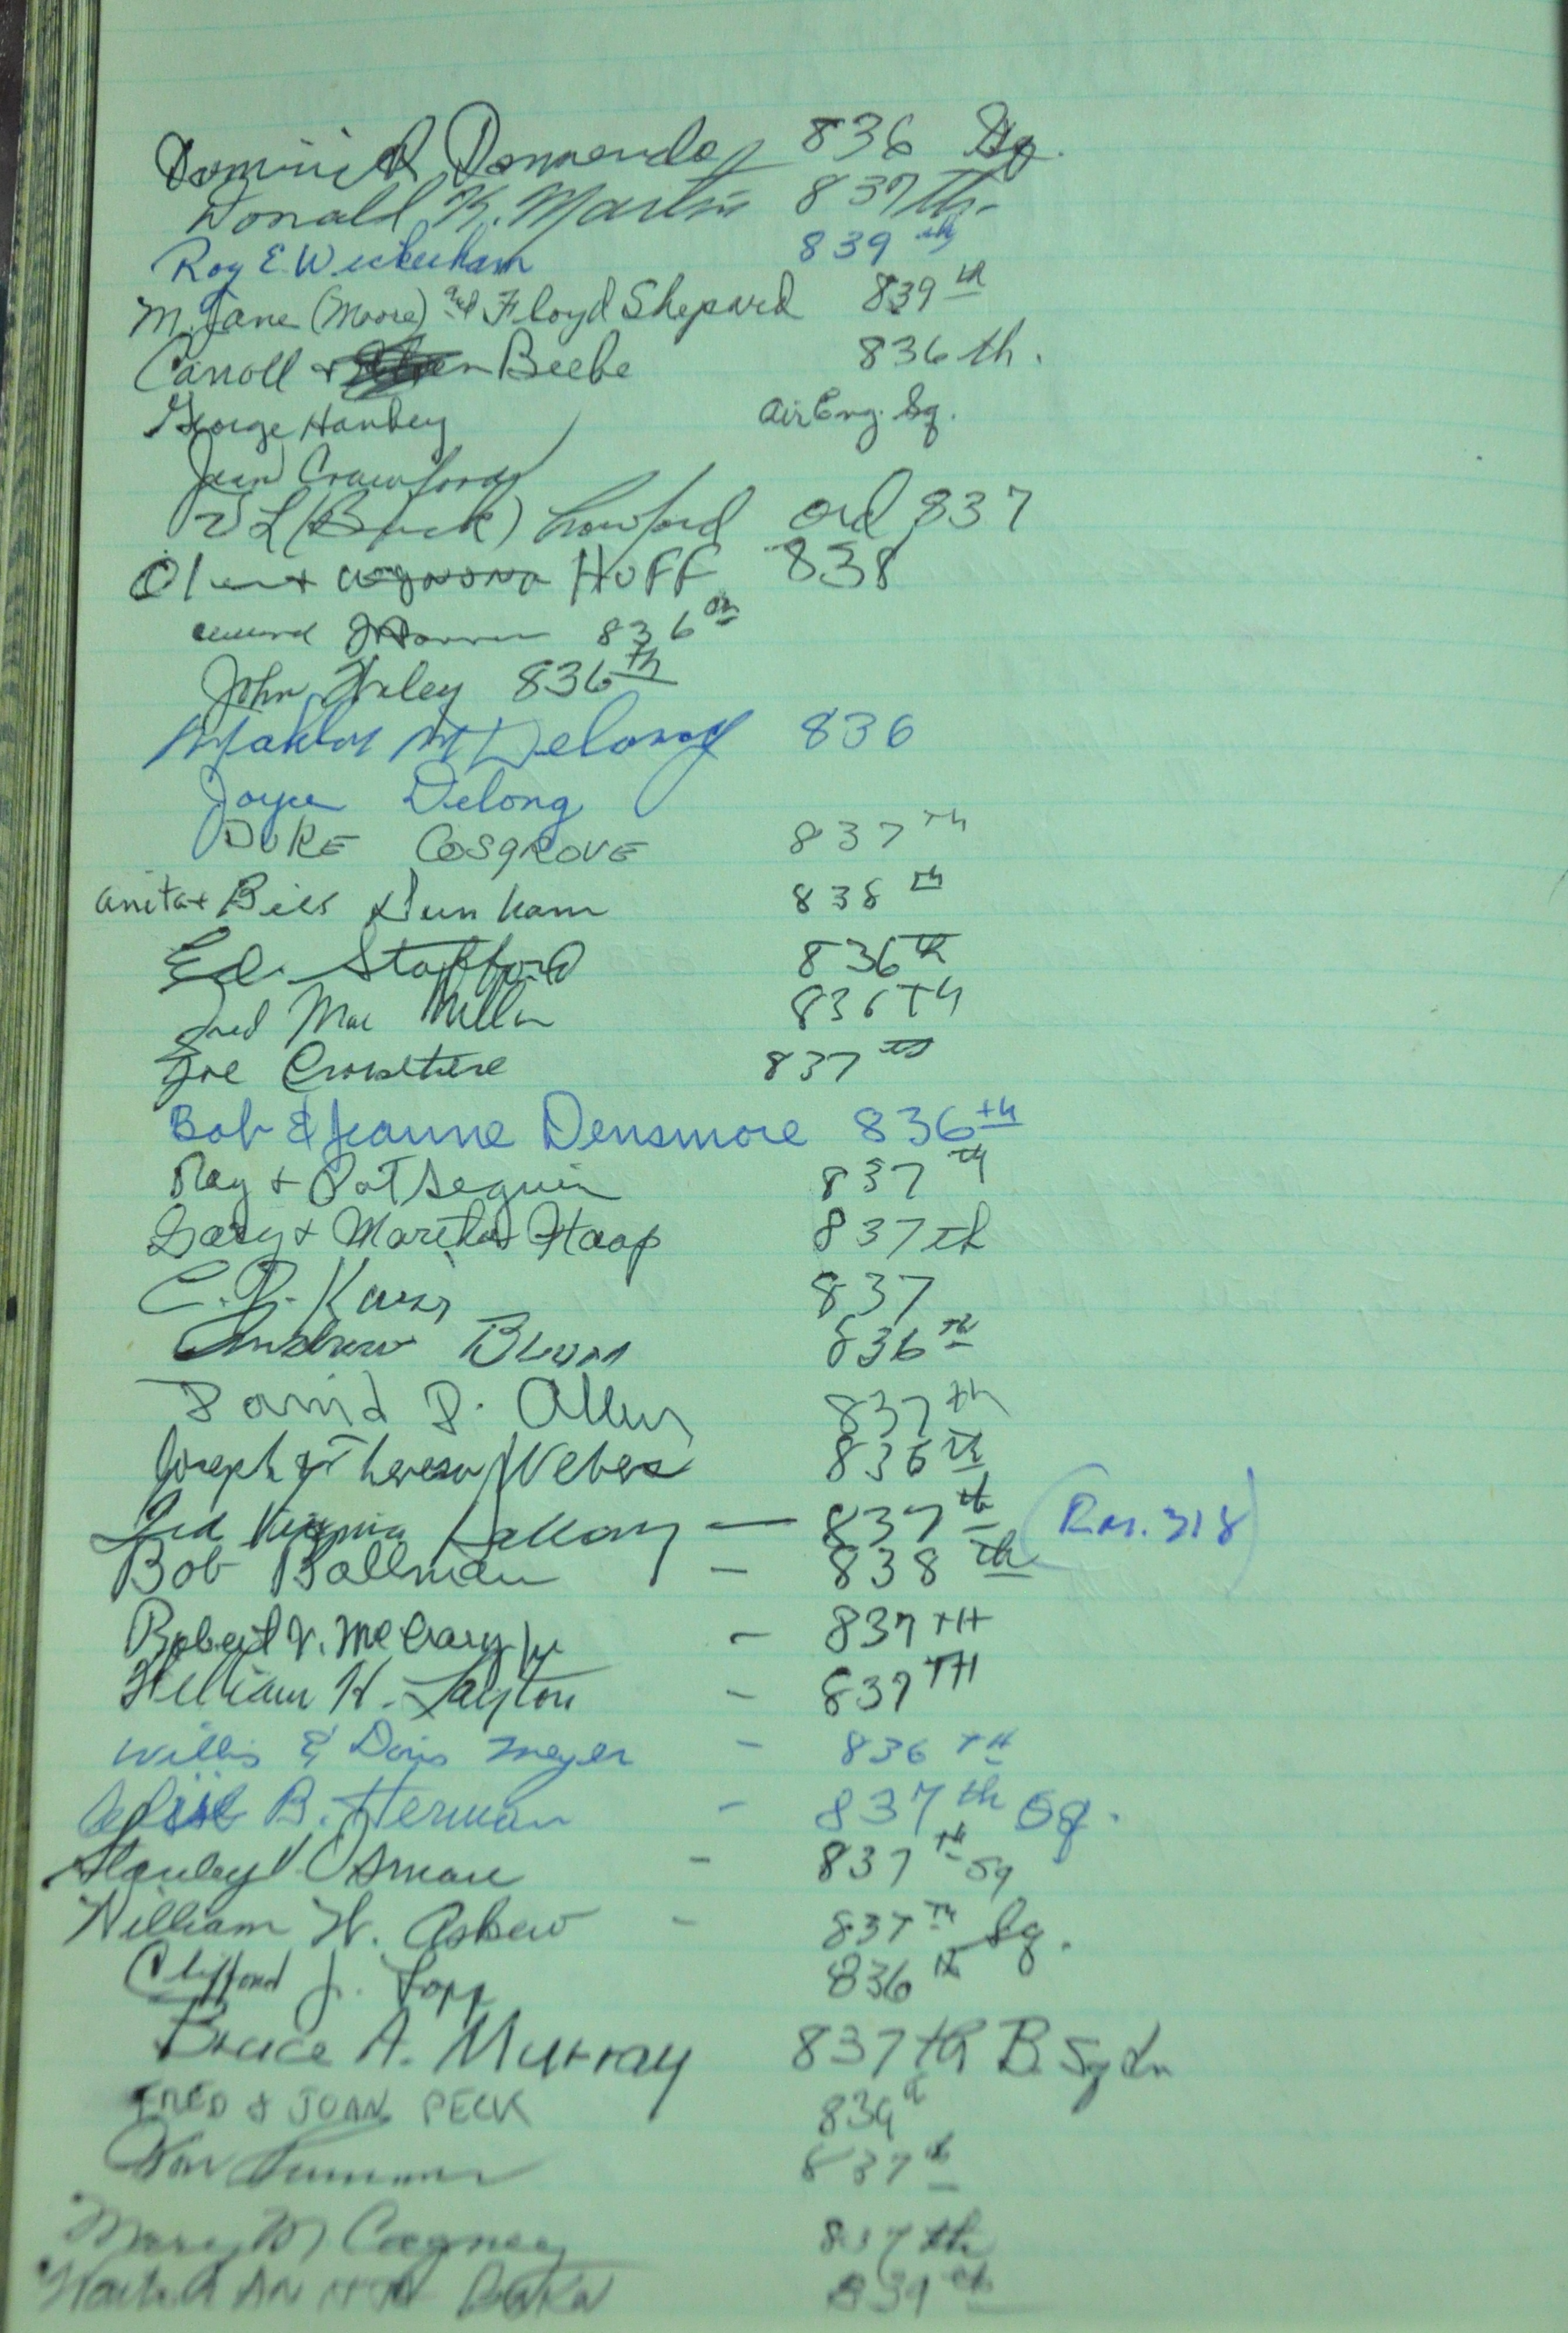 Dominick 836 Sq.
Donald K. Martin 837th
Roy E. 839th
M. Jane (Moore) and Floyd Shepard 839th
Carroll + Beebe 836th.
George Hanbey Air Eng. Sq.
Jean Crawford
(Buck) Crawford Ord 837
HUFF 838
836th
John 836th
M Delong 836
Joyce Delong
DUKE COSGROVE 837TH
Anita + Bill Dunham 838th
Ed. Stafford 836th
Fred Mac Millan 836TH
Joe 837th
Bob & Jeanne Densmore 836th
Ray + Pat Seguin 837TH
Gary + Haap 837th
837
Andrew 836TH
David D. Allen 837th
Joseph & Theresa Weber 836TH
Virginia — 837th (Rm. 318)
Bob Ballman - 838th
Robert V. McCrary Jr - 837TH
William H. Layton - 837TH
Willis & Doris Meyer - 836TH
B. Herman - 837th Sq.
Stanley V. Osmau - 837TH Sq
William H. Askew - 837TH Sq.
Clifford J. Lopp 836th
Bruce A. Murray 837th B. Sqdn
FRED & JOAN PECK 839
837th
Mary M Cagney 837th
839th